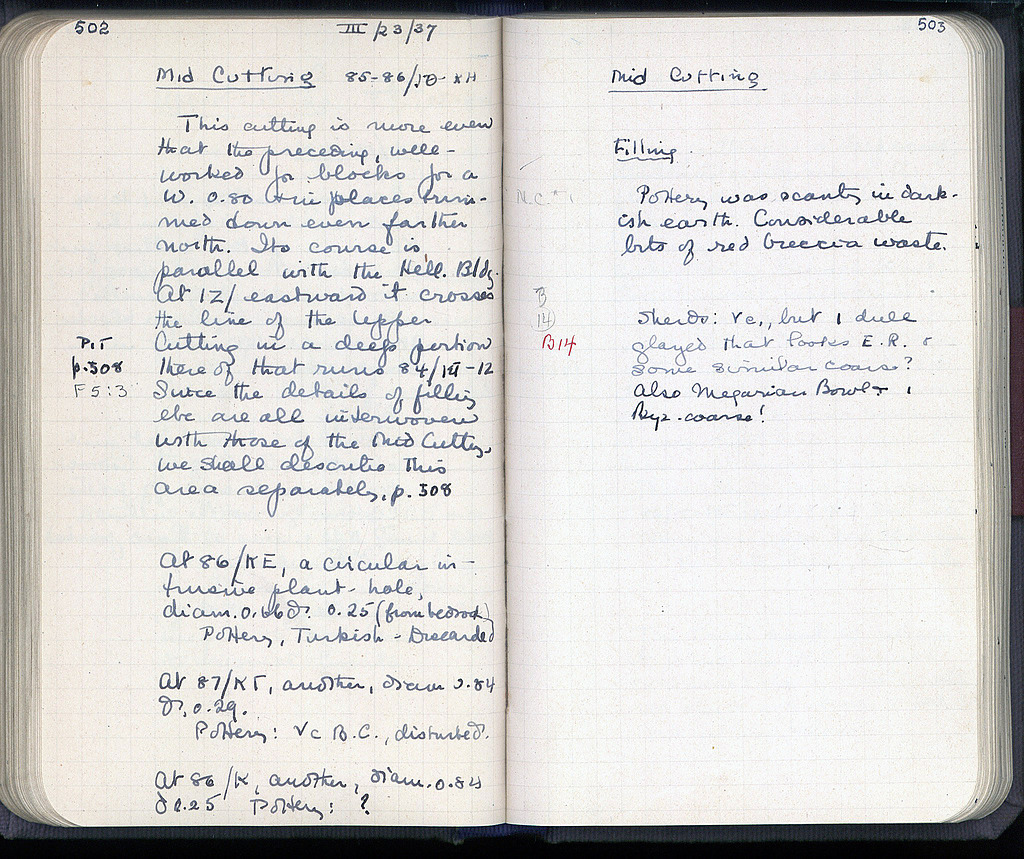 502
III/23/37
Mid Cutting 85-86/10-KH
This cutting is more even
that the preceding, well-
worked for blocks for a
W. 0.80 + in places trim-
med down even farther
north. Its course is
parallel with the Hell. Bldg.
At 12/ eastward it crosses
the line of the Upper
Cutting in a deep portion
thereof that runs 84/ -12
Since the details of filling
etc are all interwoven
with those of the Mid Cutting,
we shall describe this
area separately, p. 508
Pit
p. 508
F5:3
At 86/KE, a circular in-
trusive plant-hole,
diam. 0.66 d. 0.25 (from bedrock)
Pottery, Turkish - Discarded
At 87/KT, another, diam 0.84
d, 0.29.
Pottery: Vc B.C., disturbed.
At 86/K, another, diam. 0.84
d 0.25 Pottery: ?
503
Mid Cutting
Filling
Pottery was scanty in dark-
ish earth. Considerable
bits of red breccia waste.
B
14
B14
Sherds: Vc, but 1 dull
glazed that looks E.R. &
some similar coarse?
Also Megarian Bowl + 1
Byz. coarse!